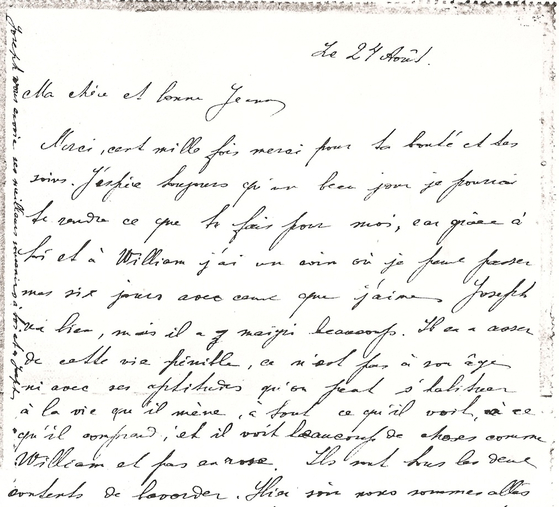 Le 27 Août.
Ma chère et bonne Jeanne
Merci, cent mille fois merci pour ta bonté et tes
soins. J'espère toujours qu'un beau jour je pourrai
te rendre ce que tu fais pour moi, car grâce à
toi et à William j'ai un coin où je peux passer
mes six jours avec ceux que j'aime Joseph
va bien, mais il a maigri beaucoup. Il en a assez
de cette vie pénible, ce n'est pas à son âge
ni avec ses aptitudes qu'on peut s'habituer
à la vie qu'il mène, à tout ce qu'il voit, à ce
qu'il comprend, et il voit beaucoup de choses comme
William et pas en rose. Ils sont tous les deux
contents de bavarder. Hier soir nous sommes allés
Joseph vous envoie ses meilleurs souvenirs à toi et à